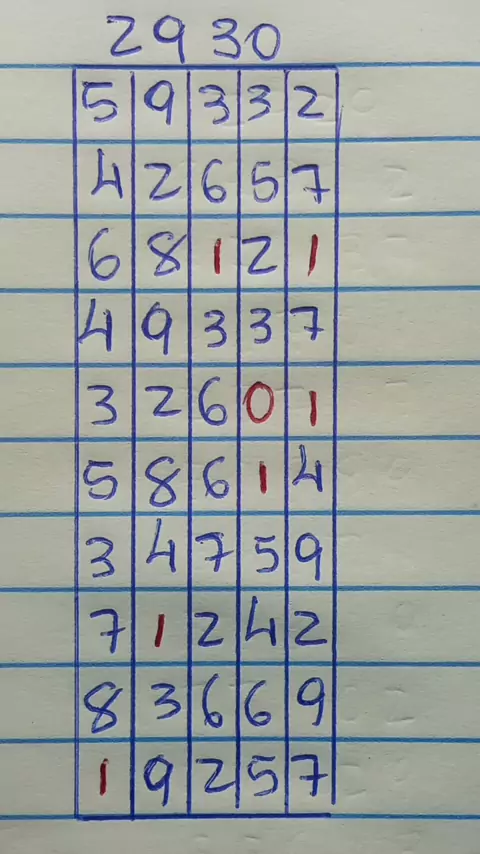 29 30
5 9 3 3 2
4 2 6 5 7
6 8 1 2 1
4 9 3 3 7
3 2 6 0 1
5 8 6 1 4
3 4 7 5 9
7 1 2 4 2
8 3 6 6 9
1 9 2 5 7